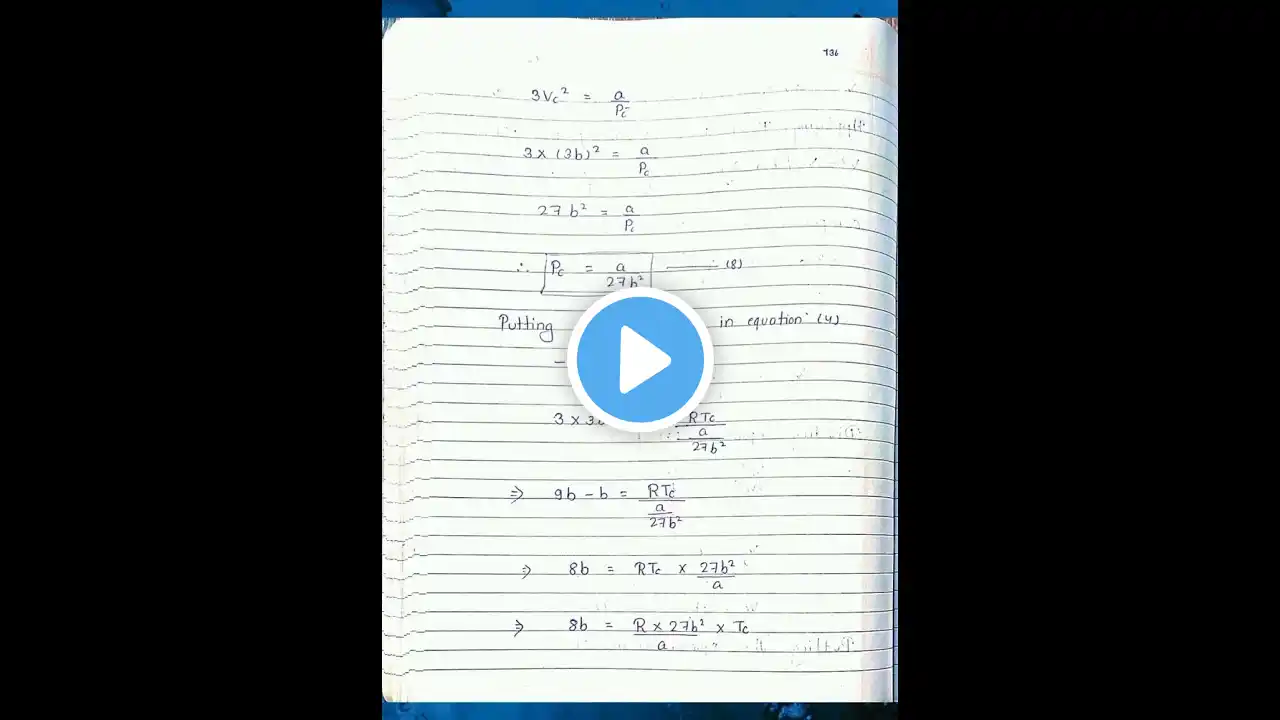 136
3Vc² = a/Pc
3 × (3b)² = a/Pc
27b² = a/Pc
∴ Pc = a/27b² —— (8)
Putting in equation (4)
3 × 3 RTc / (a/27b²)
⇒ 9b - b = RTc / (a/27b²)
⇒ 8b = RTc × 27b²/a
⇒ 8b = (R × 27b²)/a × Tc